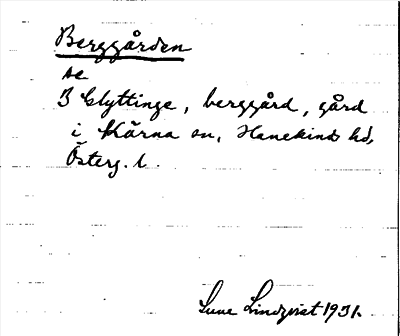 Berggården
se
B Slyttinge, berggård, gård
i Kärna sn, Hanekind hd,
Österg. l.
Sune Lindqvist 1931.